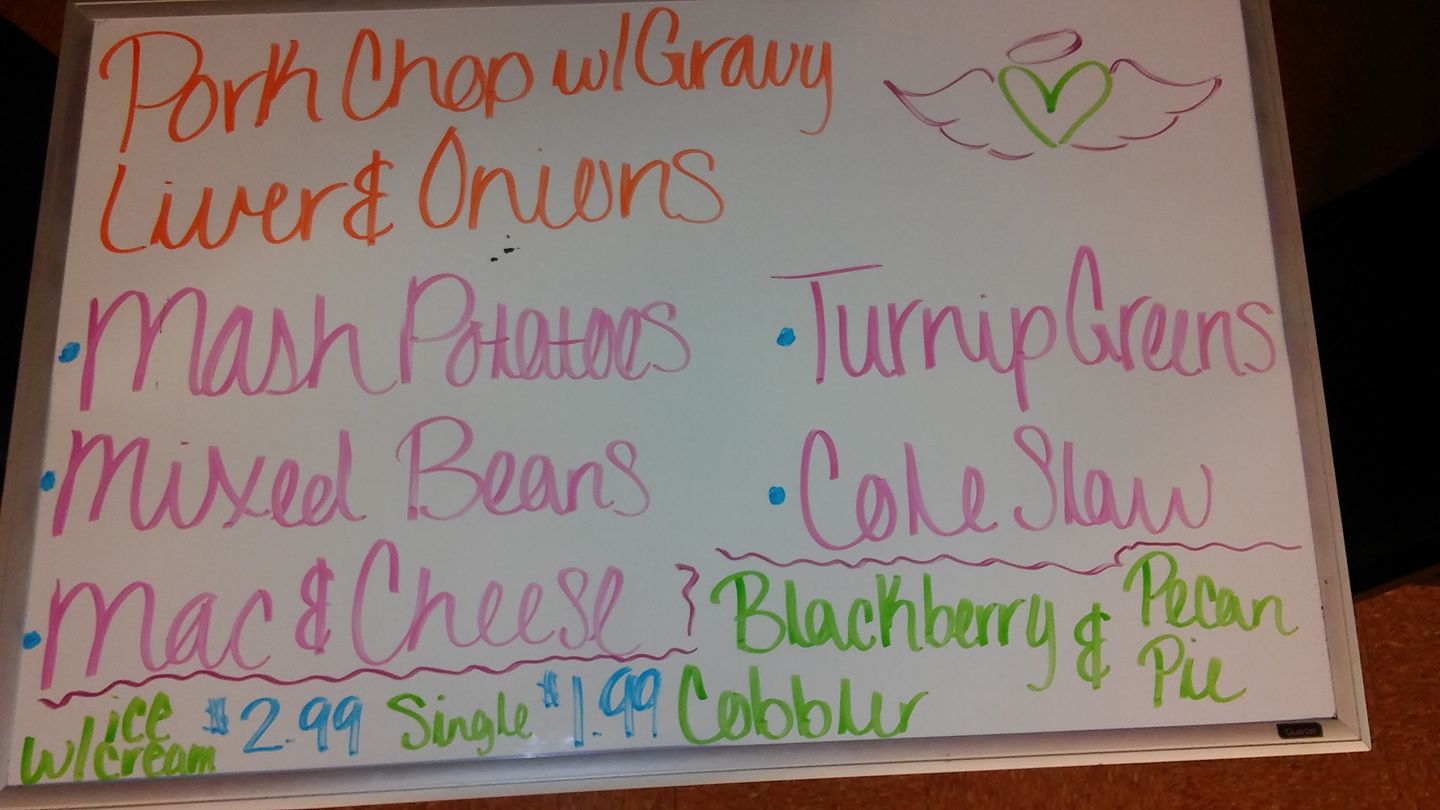 Pork Chop w/Gravy
Liver & Onions
• Mash Potatoes
• Turnip Greens
• Mixed Beans
• Cole Slaw
• Mac & Cheese
Blackberry & Pecan
Cobbler Pie
w/ice cream $2.99 Single $1.99
Quartet